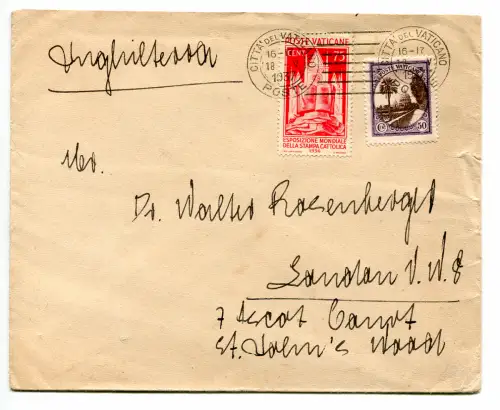 Inghilterra
CITTA' DEL VATICANO
16-
18
1937
POSTE
POSTE VATICANE
CENT. 75
ESPOSIZIONE MONDIALE
DELLA STAMPA CATTOLICA
1936
CITTA' DEL VATICANO
16-17
POSTE VATICANE
50
Mr.
Dr. Walter Rosenberger
London N.W.8
7 Ascot Court
St. John's Wood